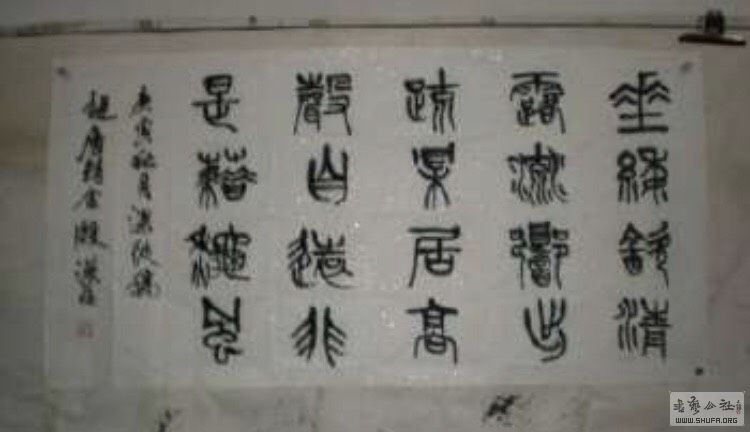 垂緌飲清
露流響出
疏桐居高
聲自遠非
是藉秋風
庚寅秋月
书艺公社
WWW.SHUFA.ORG